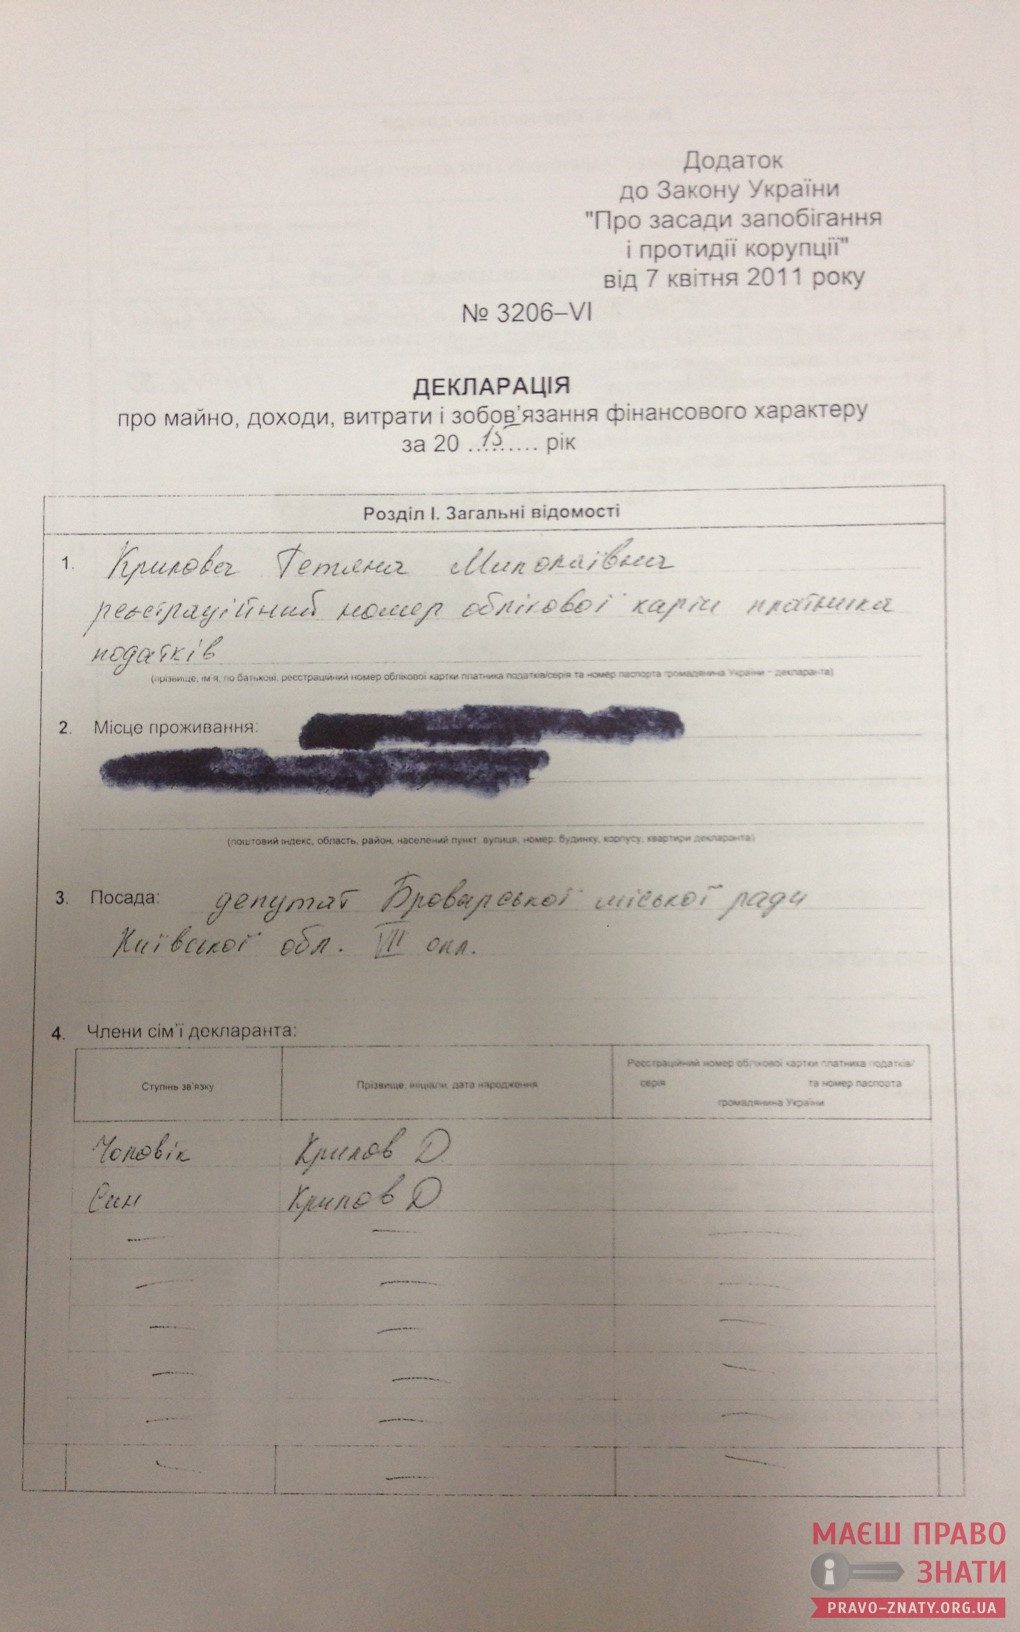 Додаток
до Закону України
"Про засади запобігання
і протидії корупції"
від 7 квітня 2011 року
№ 3206–VI
ДЕКЛАРАЦІЯ
про майно, доходи, витрати і зобов'язання фінансового характеру
за 20 ..15...... рік
Розділ І. Загальні відомості
1. Крилова Тетяна Миколаївна
реєстраційний номер облікової карти платника
податків
(прізвище, ім'я, по батькові, реєстраційний номер облікової картки платника податків/серія та номер паспорта громадянина України – декларанта)
2. Місце проживання:
(поштовий індекс, область, район, населений пункт, вулиця, номер: будинку, корпусу, квартири декларанта)
3. Посада: депутат Броварської міської ради
Київської обл. VII скл.
4. Члени сім'ї декларанта:
Ступінь зв'язку
Прізвище, ініціали, дата народження
Реєстраційний номер облікової картки платника податків/
серія та номер паспорта
громадянина України
Чоловік Крилов Д
Син Крилов Д
МАЄШ ПРАВО
ЗНАТИ
PRAVO-ZNATY.ORG.UA